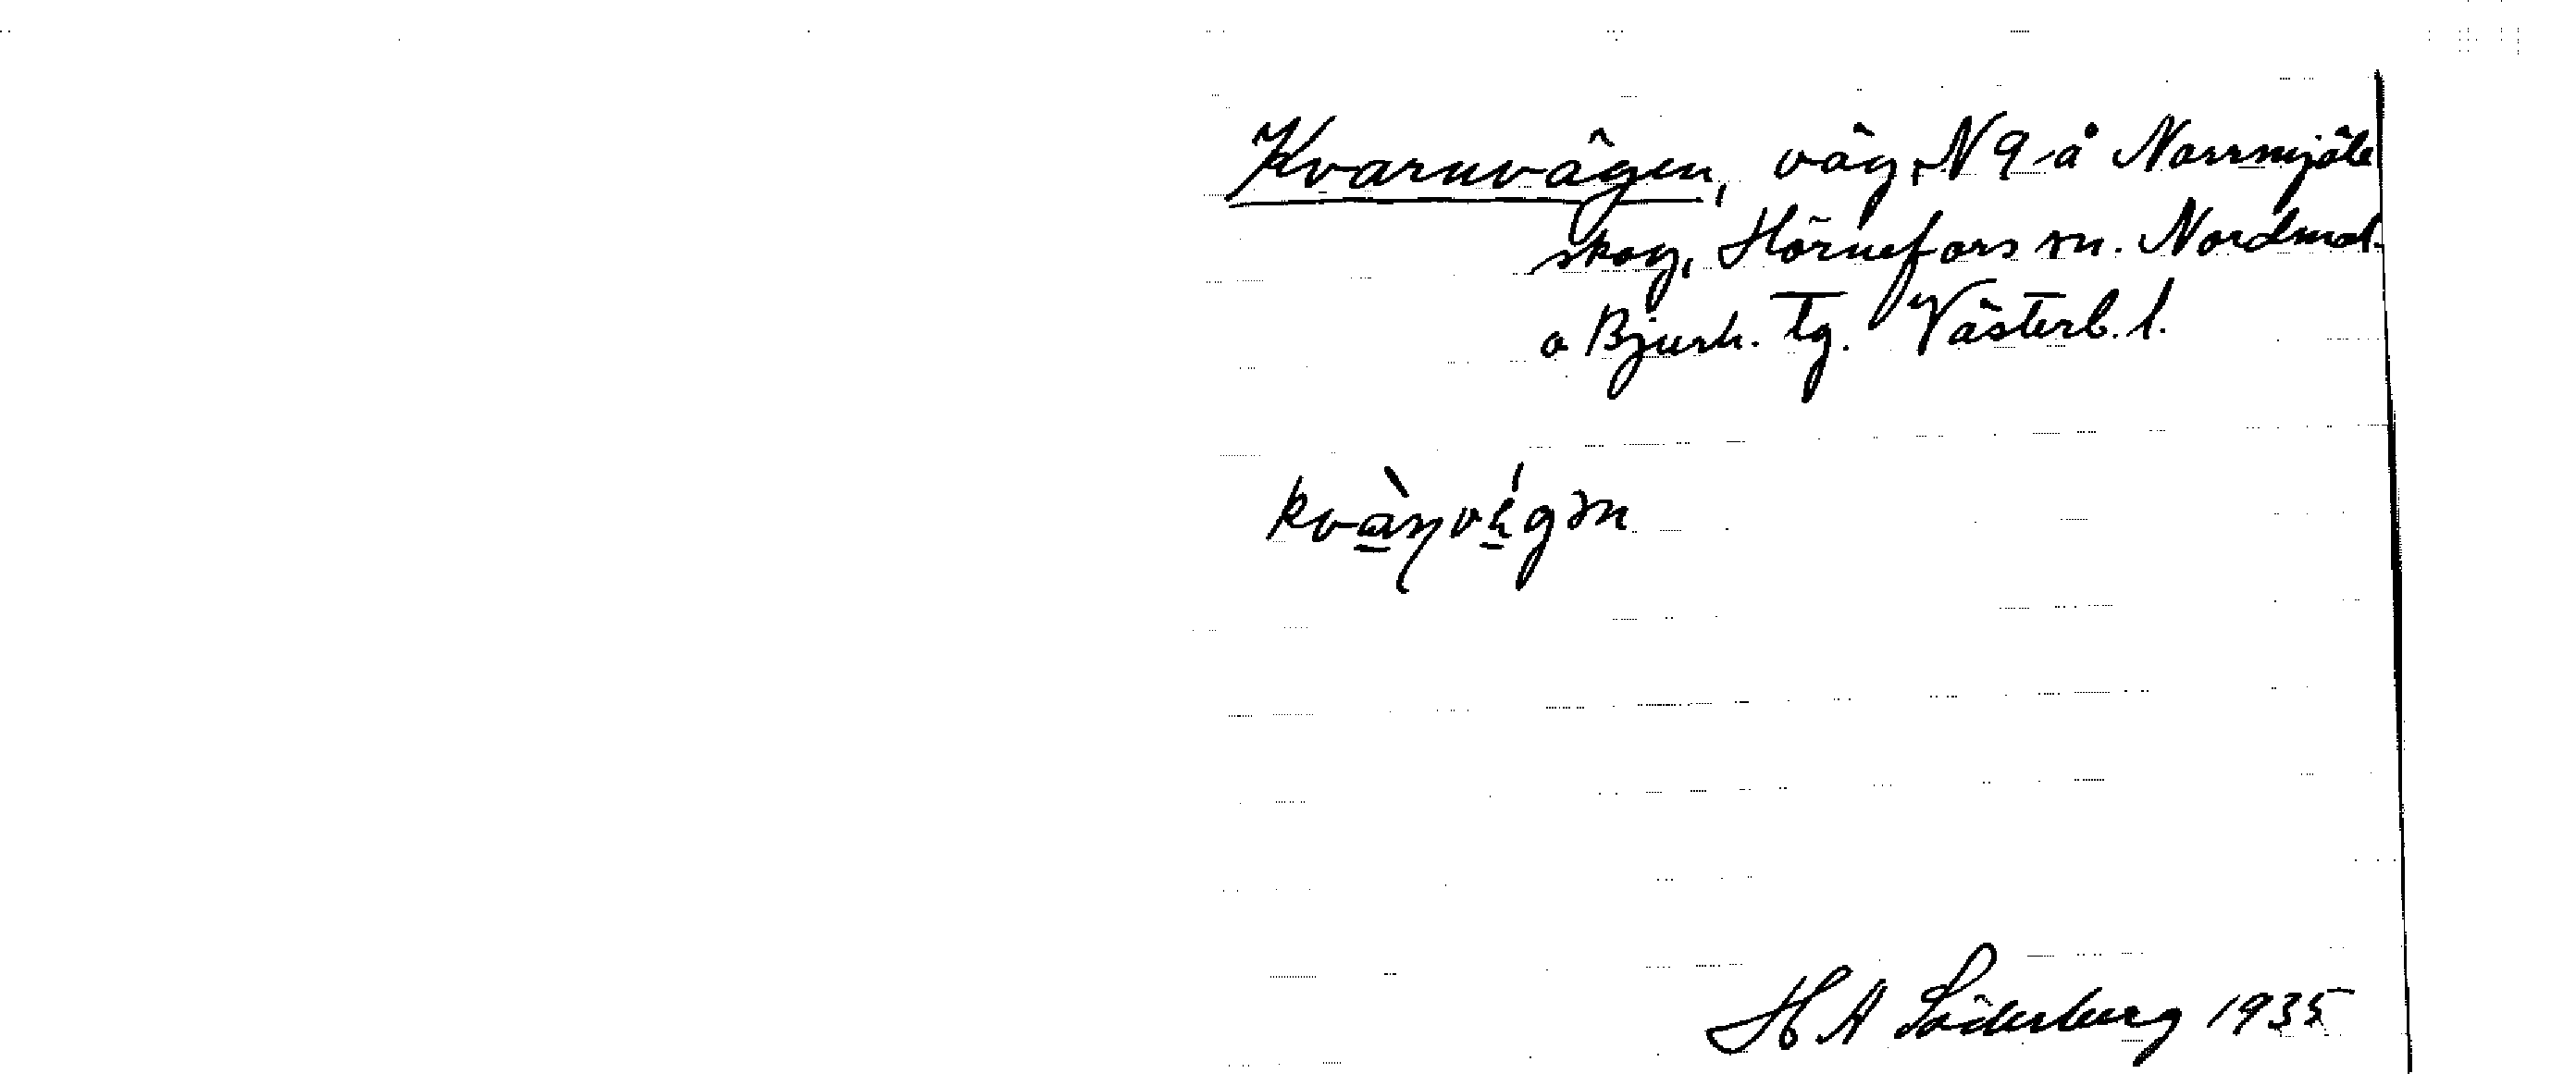 Kvarnvägen, väg, N 9 å Norrmjöle
skog, Hörnefors sn. Nordmal.
o Bjurh. Tg. Västerb. l.
H A Söderberg 1935